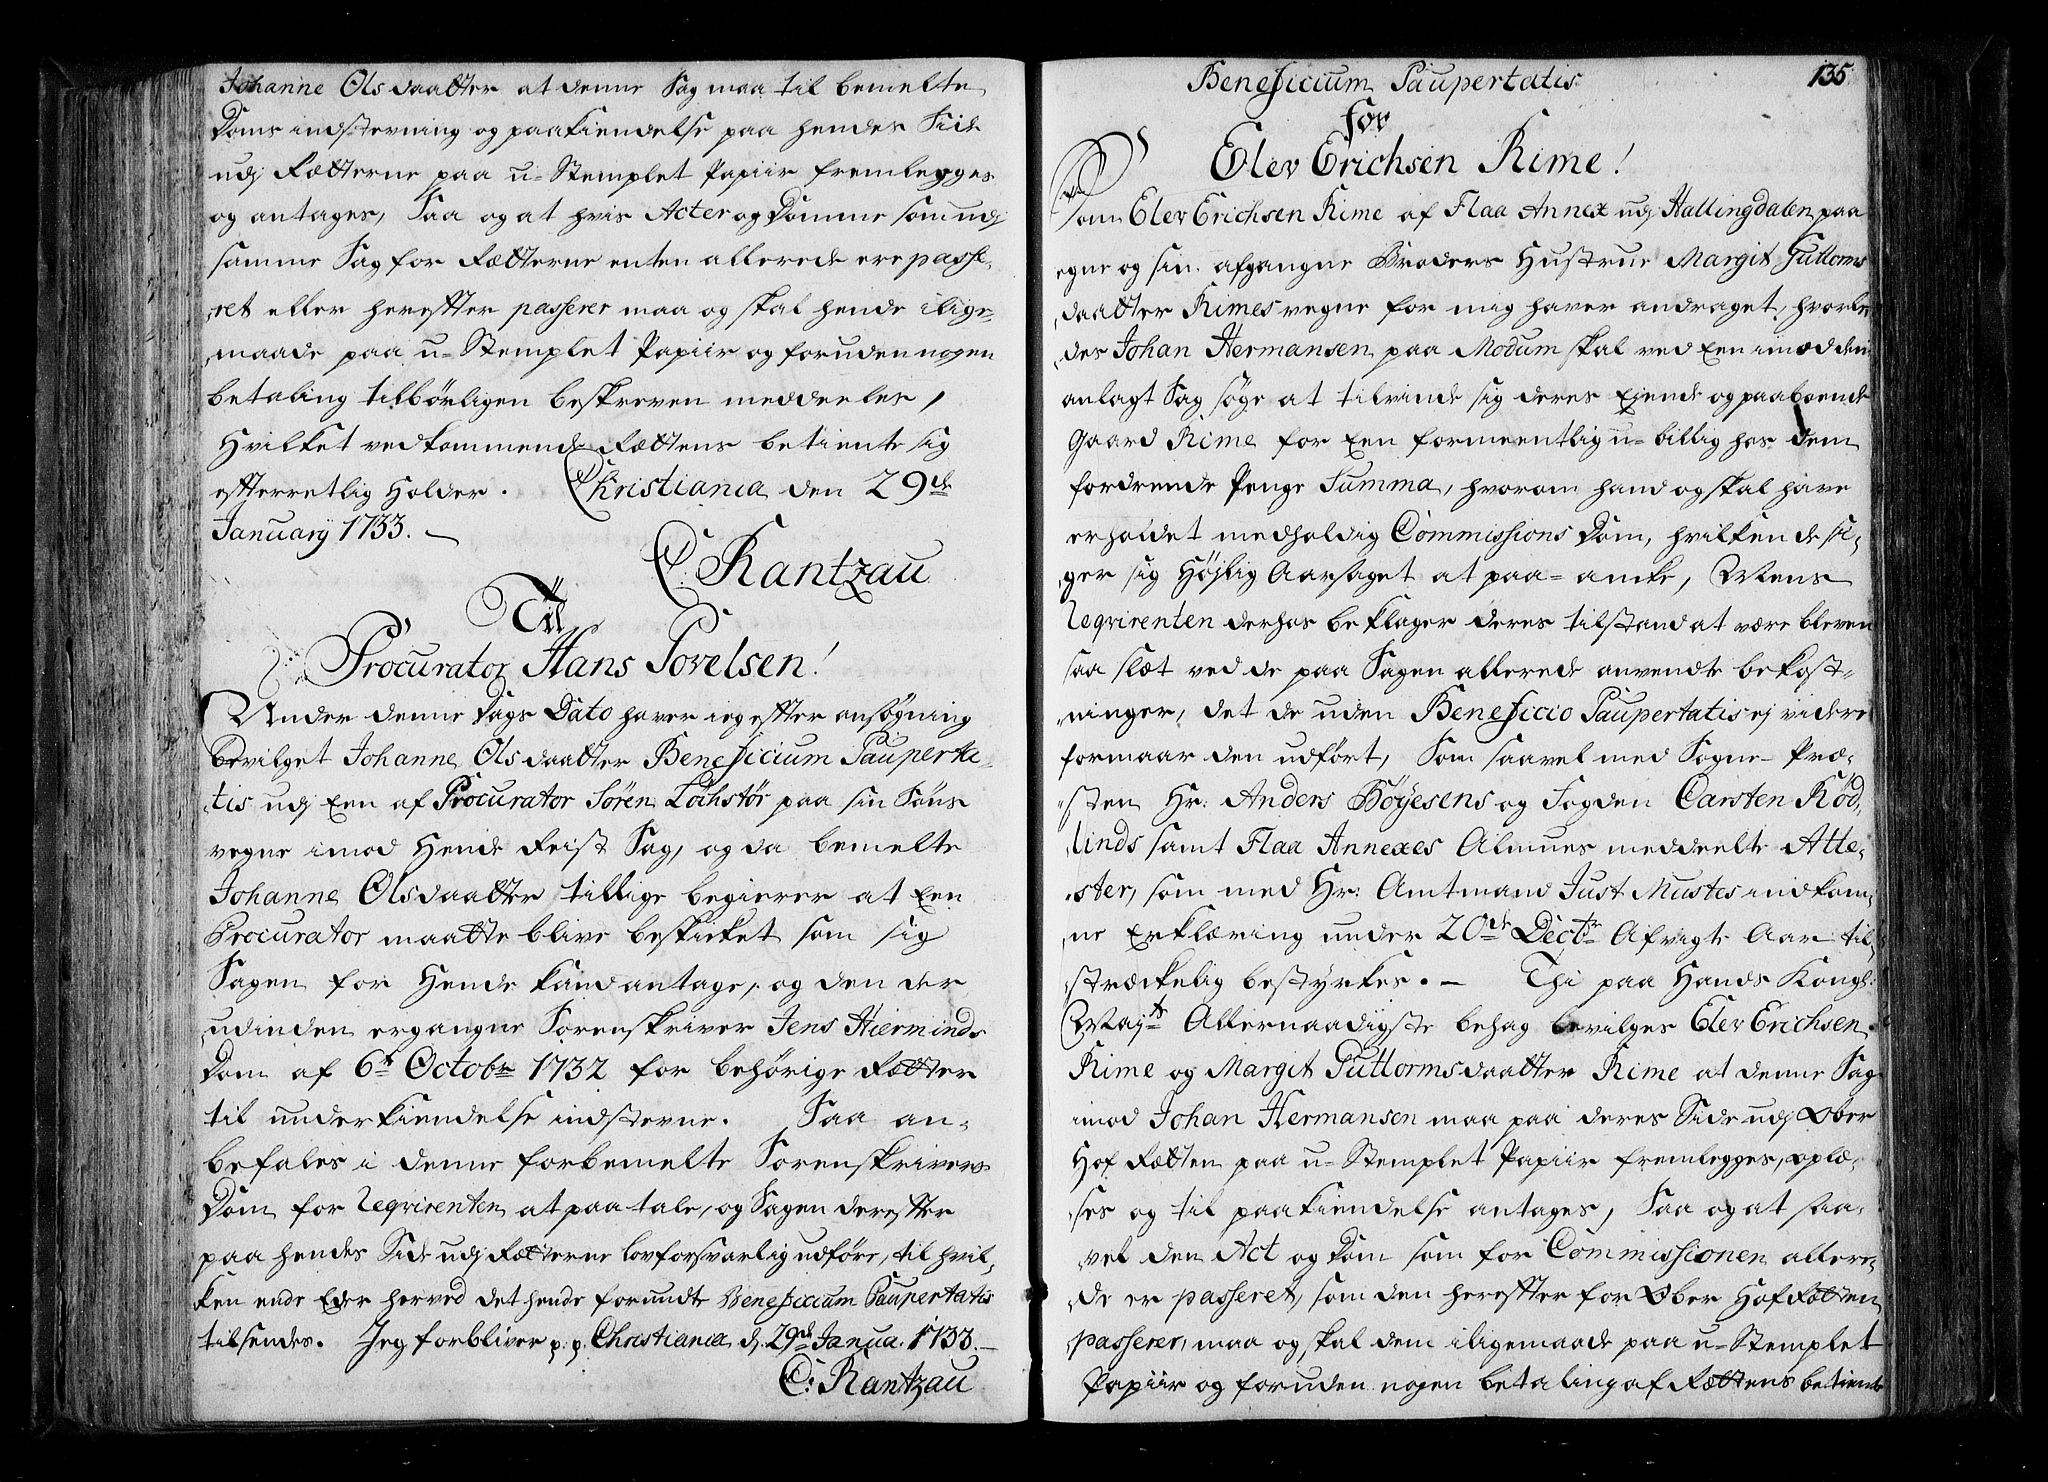 Johanne Olsdaatter at denne Sag maa til bemelte
Doms indstevning og paakiendelse paa hendes Side
udj Rætterne paa u-Stemplet Papiir fremlegges
og antages, Saa og at hvis Acter og Domme som udj
samme Sag for Rætterne enten allerede ere passe-
ret eller herefter passerer maa og skal hende i lige-
maade paa u-Stemplet Papiir og foruden nogen
betaling tilbørligen beskreven meddeeles,
Hvilket vedkommende Rættens betiente sig
efterretlig Holder. Christiania den 29de
Januarij 1733.
C: Rantzau
Til
Procurator Hans Povelsen!
Under denne Dags Dato haver ieg efter ansøgning
bevilget Johanne Olsdaatter Beneficium Pauperta-
tis udj Een af Procurator Sören Lochstör paa sin Søns
vegne imod Hende Reist Sag, og da bemelte
Johanne Olsdaatter tillige begierer at Een
Procurator maatte blive beskicket som sig
Sagen for Hende kand antage, og den der
udinden ergangne Sorenskriver Jens Hierminds
Dom af 6te Octobr 1732 for behørige Rætter
til underkiendelse indstevne. Saa an-
befales i denne forbemelte Sorenskrivers
Dom for Reqvirenten at paatale, og Sagen derefter
paa hendes Side udj Rætterne lovforsvarlig udføre, til hvil-
ken ende Eder herved det hende forundte Beneficium Paupertatis
tilsendes. Jeg forbliver p. p. Christiania d. 29de Janua. 1733.
C: Rantzau
135
Beneficium Paupertatis
for
Elev Erichsen Rime!
Som Elev Erichsen Rime af Flaa Annex udj Hallingdalen paa
egne og sin afgangne Broders Hustrue Margit Guttorms
daatter Rimes vegne for mig haver andraget, hvorle-
des Johan Hermansen paa Modum skal ved Een imod dem
anlagt Sag søge at tilvinde sig deres Ejende og paaboende
Gaard Rime for Een formeentlig u-billig hos dem
fordrende Penge Summa, hvorom hand og skal have
erholdet medholdig Commissions Dom, hvilken de si-
ger sig Højlig Aarsaget at paa-anke, Mens
Reqvirenten derhos beklager deres tilstand at være bleven
saa slæt ved de paa Sagen allerede anvendte bekost-
ninger, det de uden Beneficio Paupertatis ej videre
formaar den udført, Som saavel med Sogne-Præ-
sten Hr: Anders Böyesens og Fogden Carsten Röd-
linds samt Flaa Annexes Almues meddeelte Atte-
ster, som med Hr: Amtmand Just Mustes indkom-
ne Erklæring under 20de Dectr Afvigte Aar til-
strækelig bestyrkes. Thi paa Hands Kongl:
Mayts Allernaadigste behag bevilges Elev Erichsen
Rime og Margit Guttormsdaatter Rime at denne Sag
imod Johan Hermansen maa paa deres Side udj Ober
Hof Rætten paa u-Stemplet Papiir fremlegges, oplæ-
ses og til paakiendelse antages, Saa og at saa-
vel den Act og Dom som for Commissionen allere-
de er passeret, som den herefter for Ober Hof Rætten
passerer, maa og skal dem i ligemaade paa u-Stemplet
Papiir og foruden nogen betaling af Rættens betiente